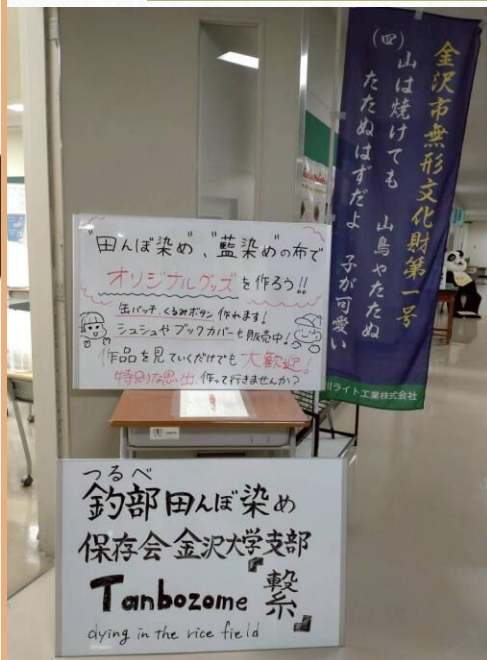 金沢市無形文化財第一号
(四)
山は焼けても 山鳥やたたぬ
たたぬはずだよ 子が可愛い
ライト工業株式会社
"田んぼ染め"、"藍染め"の布で
オリジナルグッズを作ろう!!
缶バッチ、くるみボタン 作れます!
シュシュや ブックカバーも販売中!
作品を見ていくだけでも 大歓迎!
特別な思い出、作って行きませんか?
つるべ
釣部田んぼ染め
保存会 金沢大学支部
Tanbozome『繋』
dying in the rice field